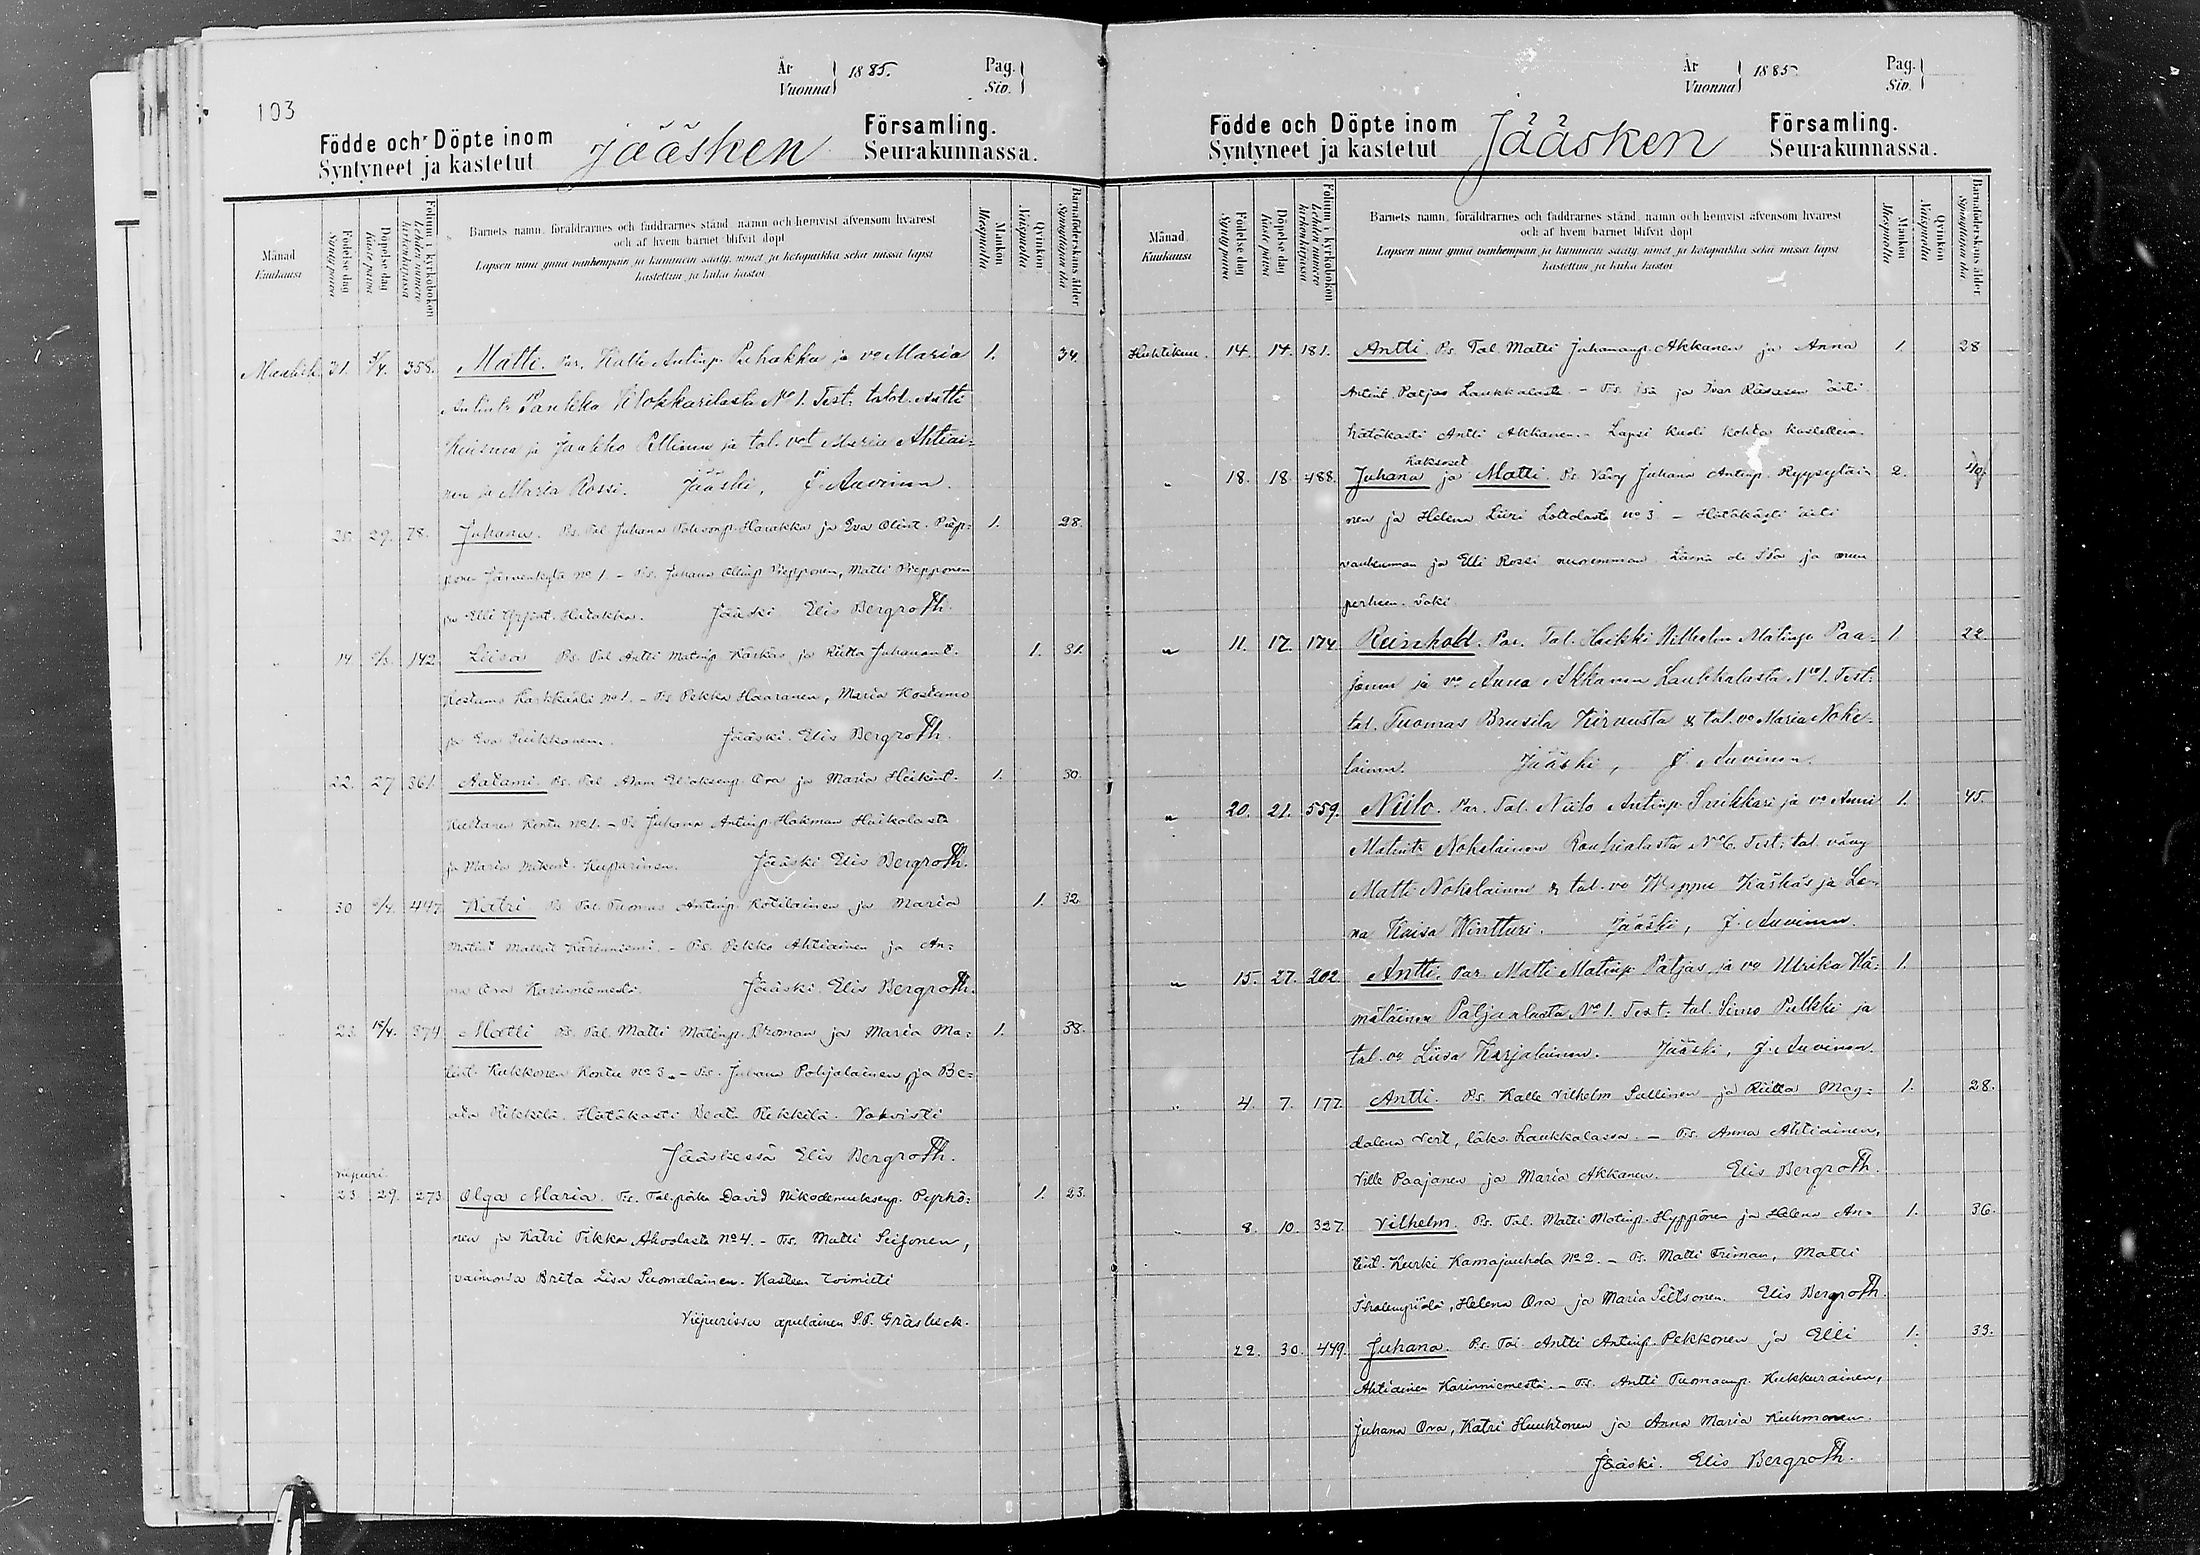 103
År
Vuonna 1885.
Pag.
Siv.
Födde och Döpte inom
Syntyneet ja kastetut
Jääsken
Församling.
Seurakunnassa.
Månad
Kuukausi
Födelse dag
Synty päivä
Döpelse dag
Kaste päivä
Folium i kyrkoboken
Lehden numero kirkonkirjassa
Barnets namn, föräldrarnes och faddrarnes stånd, namn och hemvist äfvensom hvarest
och af hvem barnet blifvit döpt
Lapsen nimi ynnä vanhempain ja kummein sääty, nimet ja kotopaikka sekä missä lapsi
kastettiin ja kuka kastoi
Mankön
Miespuolta
Qvinkön
Naispuolta
Barnaföderskans ålder
Synnyttäjän ikä
31. 358. Matti. Par. Antinp. Puhakka ja vo Maria 1. 34.
Antint. No 1. Test: talol. Antti
ja Jaakko Pellinen ja tal. vot Maria Ahtiai-
nen ja Maria Rossi. Jääski, J. Auvinen.
29. 78. Juhana. Ps. Tal. Juhana Harakka ja Eva Piep- 1. 28.
ponen Järvenkylä No 1. – Ts. Juhana Piepponen, Matti Piepponen
ja Elli Jääski Elis Bergroth.
14 142 Liisa Ps. Tal. Antti Matinp. Käskäs ja Riitta Juhanant. 1. 31.
Kostamo No 1. – Ts. Pekka Haaranen, Maria Kostamo
ja Eva Jääski. Elis Bergroth.
22. 27 361. Aatami Ps. Tal. Ora ja Maria Heikint. 1. 30.
Kontu No 1. – Ts. Juhana Antinp. Hakman Haikolasta
ja Maria Jääski Elis Bergroth.
30 447 Katri Ps. Tal. Tuomas Antinp. Kotilainen ja Maria 1. 32
Matint. Karinniemi. – Ts. Pekko Ahtiainen ja An-
na Ora Karinniemestä. Jääski. Elis Bergroth.
23. 374 Matti Ps. Tal. Matti Matinp. ja Maria Ma- 1. 38.
tint. Kukkonen Kontu No 3. – Ts. Juhana Pohjalainen ja Be-
ata Rikkilä. Hätäkasti Beat. Rikkilä. Vahvisti
Jääskessä Elis Bergroth.
23. 29. 273. Olga Maria. Ps. Tal.poika David Nikodemuksenp. 1. 23.
nen ja Katri Tikka Ahvolasta No 4. – Ts. Matti
vaimonsa Brita Liisa Suomalainen. Kasteen toimitti
Viipurissa apulainen Gräsbeck.
År
Vuonna 1885
Pag.
Siv.
Födde och Döpte inom
Syntyneet ja kastetut
Jääsken
Församling.
Seurakunnassa.
Månad
Kuukausi
Födelse dag
Synty päivä
Döpelse dag
Kaste päivä
Folium i kyrkoboken
Lehden numero kirkonkirjassa
Barnets namn, föräldrarnes och faddrarnes stånd, namn och hemvist äfvensom hvarest
och af hvem barnet blifvit döpt
Lapsen nimi ynnä vanhempain ja kummein sääty, nimet ja kotopaikka sekä missä lapsi
kastettiin ja kuka kastoi
Mankön
Miespuolta
Qvinkön
Naispuolta
Barnaföderskans ålder
Synnyttäjän ikä
Huhtikuu. 14. 14. 181. Antti Ps. Tal. Matti Juhananp. Akkanen ja Anna 1. 28
Antint. Paljas Laukkalasta – Ts. Isä ja Ivar Räsäsen äiti
hätäkasti Antti Akkanen. Lapsi kuoli kohta
kaksoset
18. 18. 488. Juhana ja Matti. Ps. Vävy Juhana Antinp. Ryppyläi- 2.
nen ja Helena Liiri No 3 – Hätäkasti äiti
vanhemman ja Elli Rossi nuoremman Läsnä oli Isä ja muu
perheen väki
11. 17. 174 Reinhold. Par. Tal. Heikki Vilhelm Matinp. Paa- 1 22
janen ja vo Anna Akkanen Laukkalasta No 1. Test:
tal. Tuomas Brusila Kirvusta & tal. vo Maria Nohe-
lainen. Jääski, J. Auvinen.
20. 21. 559. Niilo. Par. Tal. Niilo Antinp. ja vo Anni 1. 45.
Matint. Nokelainen Rauhialasta No 6. Test: tal. vävy
Matti Nokelainen & tal. vo Käskäs ja Le-
na Kaisa Wintturi. Jääski, J. Auvinen.
15. 27. 202. Antti. Par. Matti Matinp. Paljas ja vo Ulrika Hä- 1.
mäläinen No 1. Test: tal. Simo Pulkki ja
tal. vo Liisa Karjalainen. Jääski, J. Auvinen.
4. 7. 177. Antti. Ps. Kalle Vilhelm Sallinen ja Riitta Mag- 1. 28.
dalena läks. Laukkalassa. – Ts. Anna Ahtiainen,
Ville Paajanen ja Maria Akkanen. Elis Bergroth.
8. 10. 327. Vilhelm. Ps. Tal. Matti Matinp. Hyppönen ja Helena An- 1. 36.
tint. Kurki Kamajauhola No 2. – Ts. Matti Friman, Matti
Helena Ora ja Maria Siitsonen. Elis Bergroth.
22. 30. 449. Juhana. Ps. Tal. Antti Antinp. Pekkonen ja Elli 1. 33.
Ahtiainen Karinniemestä. – Ts. Antti Tuomaanp. Kukkurainen,
Juhana Ora, Katri Huuhtonen ja Anna Maria Kuhmonen.
Jääski. Elis Bergroth.